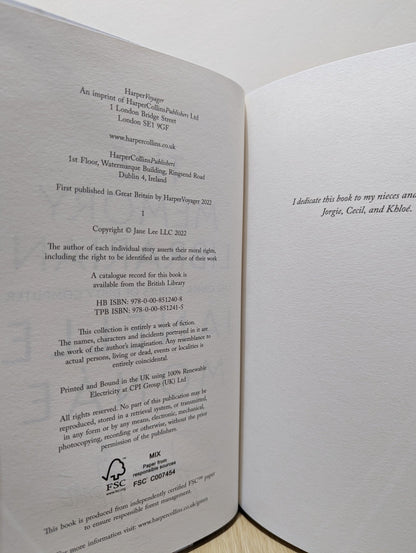 HarperVoyager
An imprint of HarperCollinsPublishers Ltd
1 London Bridge Street
London SE1 9GF
www.harpercollins.co.uk
HarperCollinsPublishers
1st Floor, Watermarque Building, Ringsend Road
Dublin 4, Ireland
First published in Great Britain by HarperVoyager 2022
1
Copyright © Jane Lee LLC 2022
The author of each individual story asserts their moral rights,
including the right to be identified as the author of their work
A catalogue record for this book is
available from the British Library
HB ISBN: 978-0-00-851240-8
TPB ISBN: 978-0-00-851241-5
This collection is entirely a work of fiction.
The names, characters and incidents portrayed in it are
the work of the author's imagination. Any resemblance to
actual persons, living or dead, events or localities is
entirely coincidental.
Printed and Bound in the UK using 100% Renewable
Electricity at CPI Group (UK) Ltd
All rights reserved. No part of this publication may be
reproduced, stored in a retrieval system, or transmitted,
in any form or by any means, electronic, mechanical,
photocopying, recording or otherwise, without the prior
permission of the publishers.
FSC
www.fsc.org
MIX
Paper from
responsible sources
FSC™ C007454
This book is produced from independently certified FSC™ paper
to ensure responsible forest management.
For more information visit: www.harpercollins.co.uk/green
I dedicate this book to my nieces and
Jorgie, Cecil, and Khloé.